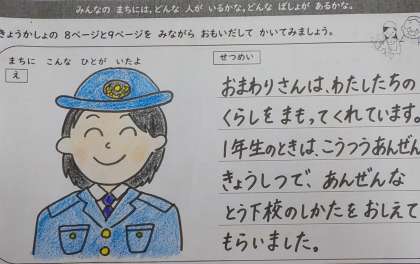 みんなの まちには、どんな 人が いるかな。どんな ばしょが あるかな。
きょうかしょの 8ページと9ページを みながら おもいだして かいてみましょう。
まちに こんな ひとが いたよ
え
せつめい
おまわりさんは、わたしたちの
くらしを まもってくれています。
1年生のときは、こうつうあんぜん
きょうしつで、あんぜんな
とう下校のしかたを おしえて
もらいました。